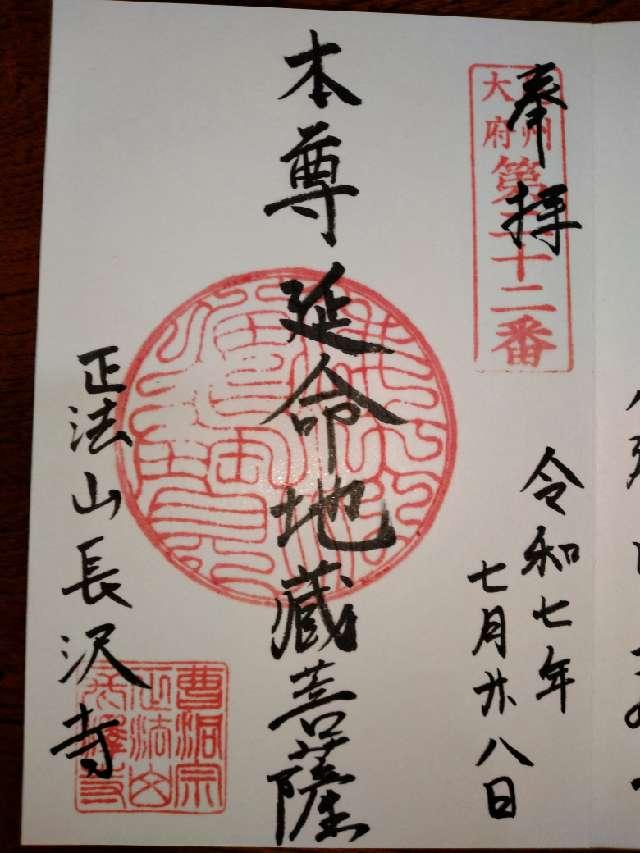 奉拝
州
大府
第三十二番
令和七年
七月廿八日
本尊延命地蔵菩薩
正法山長沢寺
曹洞宗
正法山
長澤寺